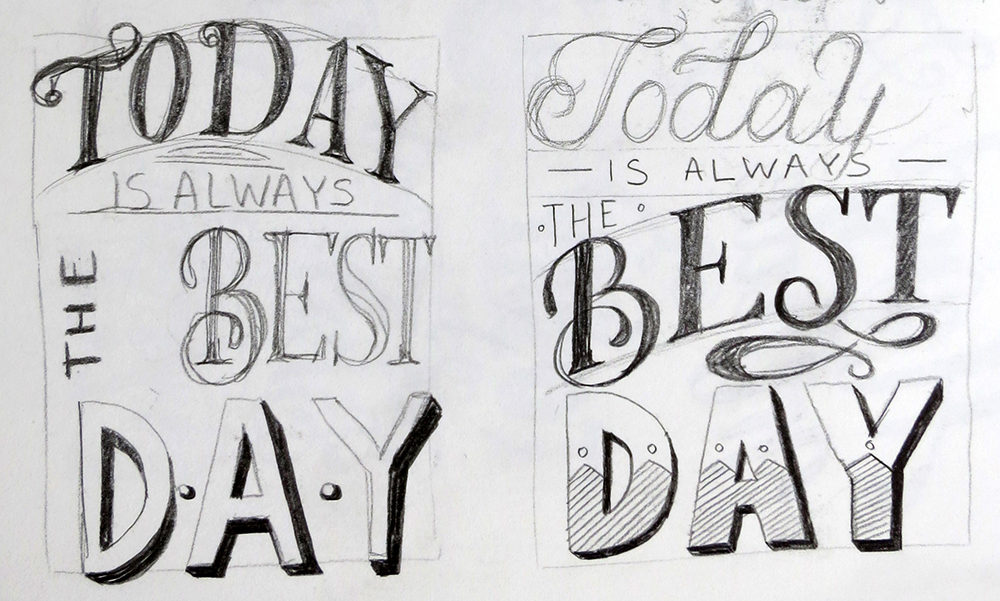 TODAY
IS ALWAYS
THE BEST
D·A·Y
Today
— IS ALWAYS —
·THE·
BEST
DAY